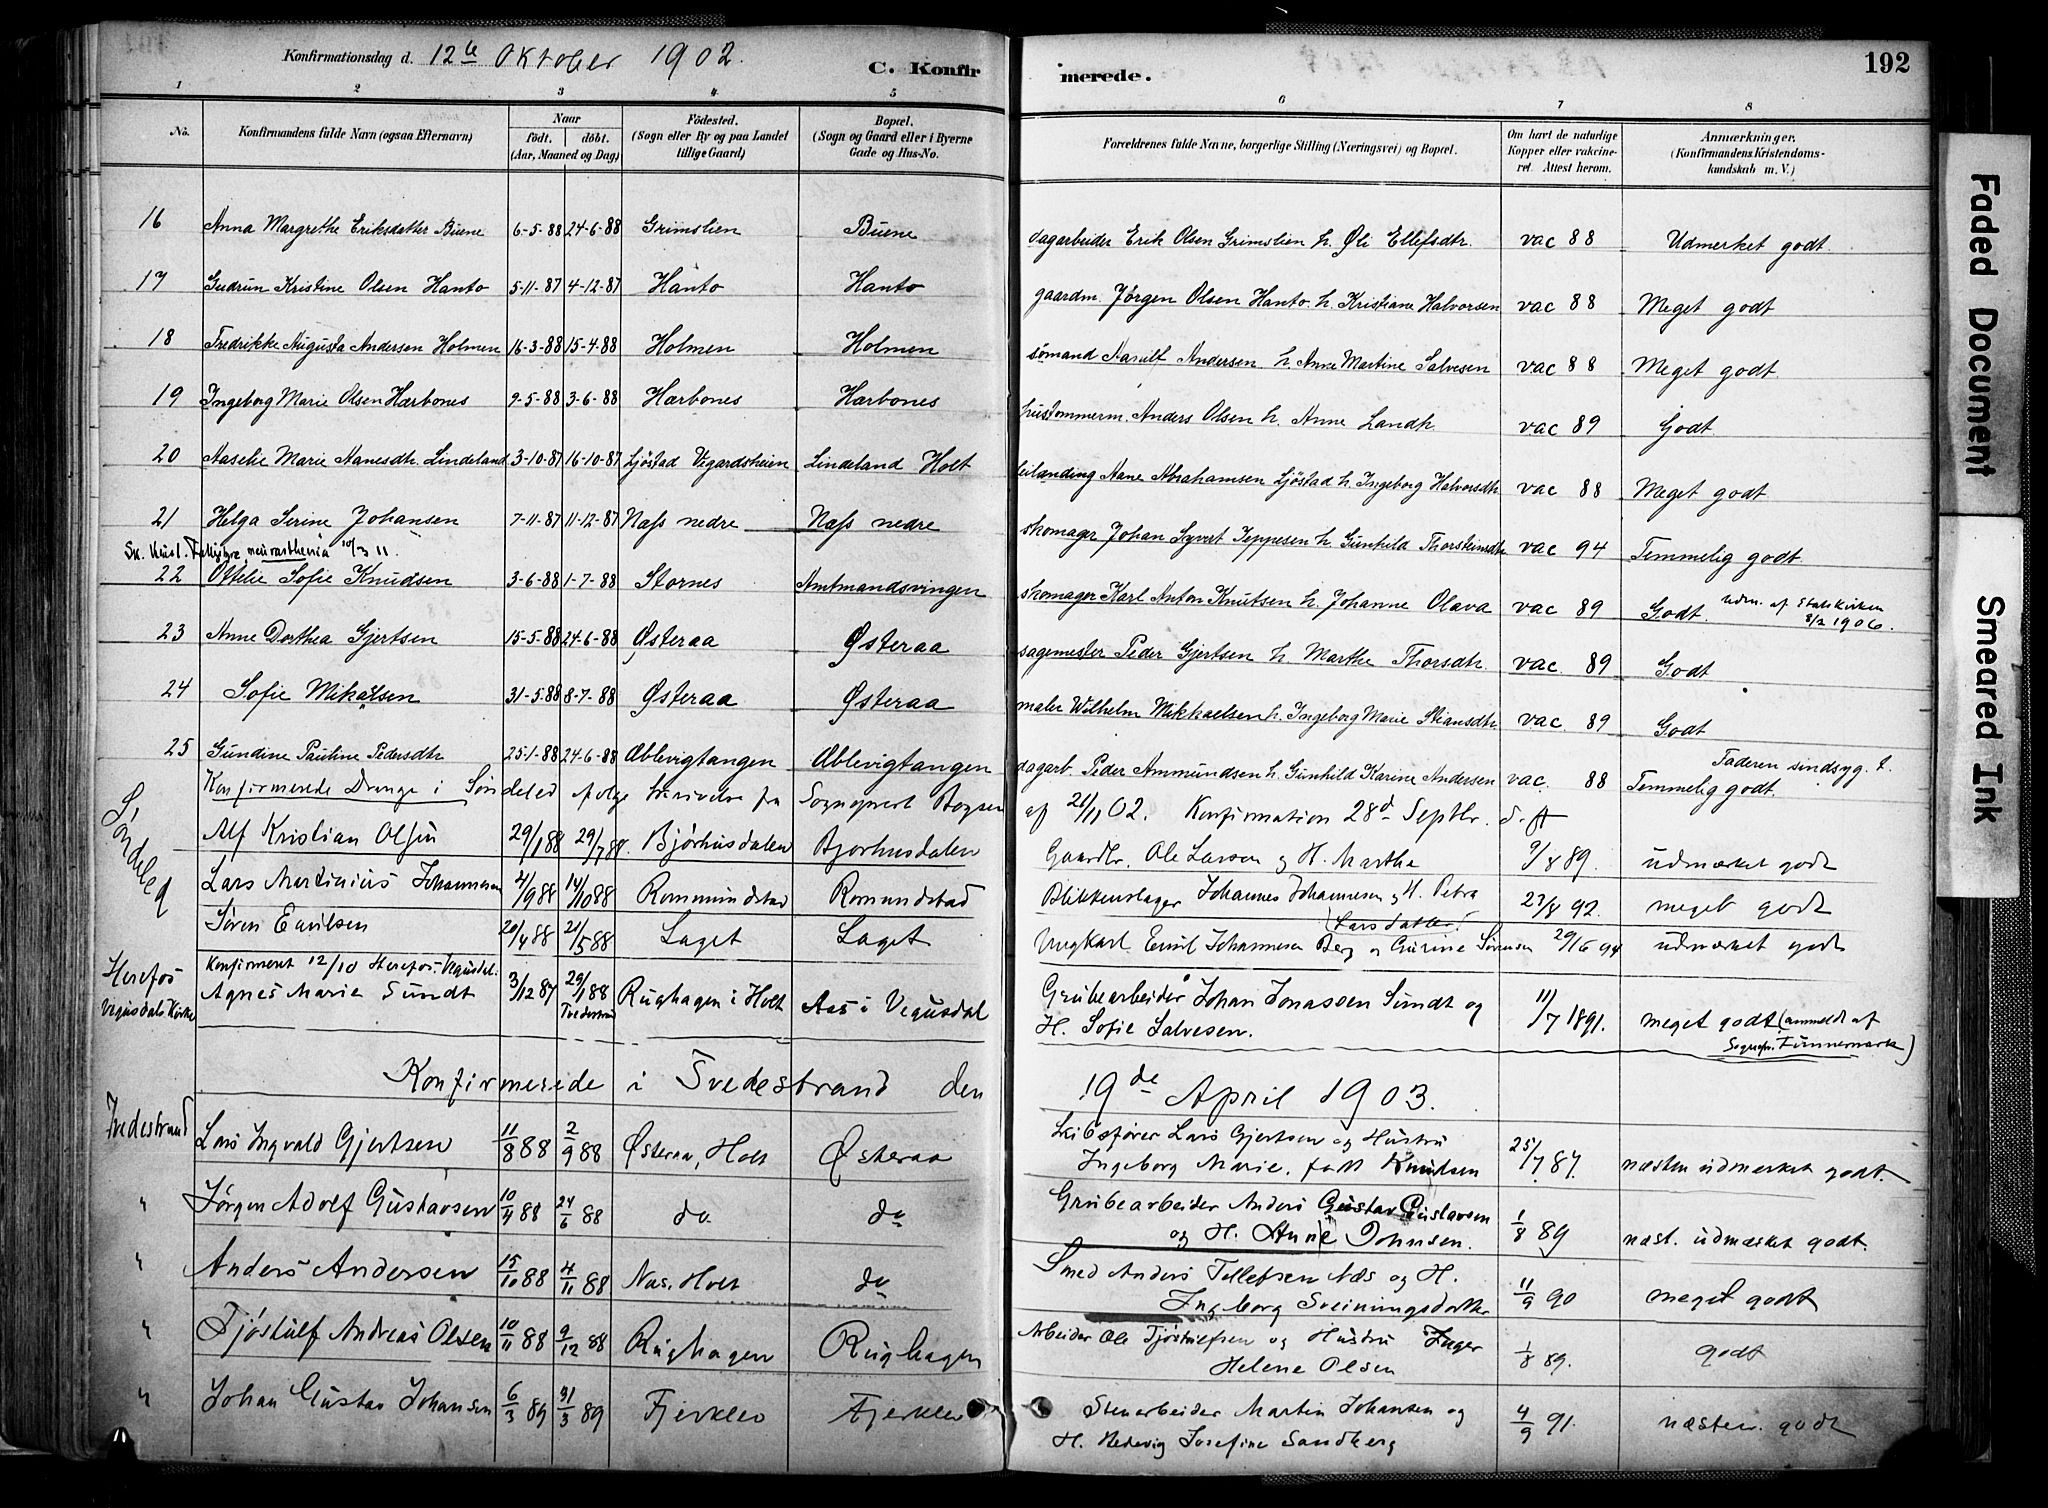 Konfirmationsdag d. 12te Oktober 1902.
C. Konfirmerede.
192
1 2 3 4 5 6 7 8
No. Konfirmandens fulde Navn (ogsaa Efternavn) Naar født. døbt. (Aar, Maaned og Dag) Födested. (Sogn eller By og paa Landet tillige Gaard) Bopæl. (Sogn og Gaard eller i Byerne Gade og Hus-No. Forældrenes fulde Navne, borgerlige Stilling (Næringsvei) og Bopæl. Om havt de naturlige Kopper eller vakcineret. Attest herom. Anmærkninger. (Konfirmandens Kristendomskundskab m. V.)
16 Anna Margrethe Eriksdatter Buene 6-5-88 24-6-88 Grimslien Buene dagarbeider Erik Olsen Grimslien h. Øli Ellefsdtr. vac 88 Udmerket godt
17 Gudrun Kristine Olsen Hanto 5-11-87 4-12-87 Hanto Hanto gaardm. Jørgen Olsen Hanto h. Kristiane Halvorsen vac 88 Meget godt
18 Fredrikke Augusta Andersen Holmen 16-3-88 15-4-88 Holmen Holmen sömand Aanulf Andersen h. Anne Martine Salvesen vac 88 Meget godt
19 Ingeborg Marie Olsen Hærbones 9-5-88 3-6-88 Hærbones Hærbones hustommerm. Anders Olsen h. Anne Landh. vac 89 Godt
20 Aaselie Marie Aanesdtr. Lindeland 3-10-87 16-10-87 Ljöstad Vegardsheien Lindeland Holt leilænding Aane Abrahamsen Ljöstad h. Ingeborg Halvorsdtr vac 88 Meget godt
21 Helga Serine Johansen 7-11-87 11-12-87 Næss nedre Næss nedre skomager Johan Syvert Jeppesen h. Gunhild Thorsteinsdtr vac 94 Temmelig godt.
neurasthenia 10/3 11.
22 Ottelie Sofie Knudsen 3-6-88 1-7-88 Stornes Amtmandsvingen skomager Karl Anton Knutsen h. Johanne Olava vac 89 Godt. Udm. af Statskirken 8/2 1906.
23 Anne Dorthea Gjertsen 15-5-88 24-6-88 Østeraa Østeraa sagemester Peder Gjertsen h. Marthe Thorsdtr. vac 89 Godt
24 Sofie Mikalsen 31-5-88 8-7-88 Østeraa Østeraa maler Wilhelm Mikkaelsen h. Ingeborg Marie Stiansdtr vac. 89 Godt
25 Gundine Pauline Pedersdtr 25-1-88 24-6-88 Æblevigtangen Æblevigtangen dagarb. Peder Ammundsen h. Gunhild Karine Andersen vac. 88 Faderen sindsyg. Temmelig godt.
Konfirmerede Drenge i Söndeled ifølge Skrivelse fra Sogneprest Bogsen af 21/11 02. Konfirmation 28d Septbr. d. A
Söndeled
Alf Kristian Olsen 29/1 88 29/7 88. Bjørhusdalen Bjørhusdalen Gaardbr. Ole Larsen og H. Martha 9/8 89. udmærket godt
Lars Martinius Johannesen 4/9 88 14/10 88 Rommundstad Romundstad Blikkenslager Johannes Johannesen og H. Petra (Larsdatter) 27/8 92. meget godt
Søren Emilsen 20/4 88 21/5 88 Laget Laget Ungkarl Emil Johannesen Berg og Gurine Sørensen 29/6 94 udmærket godt
Herefos Vegusdals Kirke
Konfirmeret 12/10 Herefos. Vegusdal.
Agnes Marie Sundt 3/12 87 29/1 88 Tvedestrand Rughagen i Holt Aas i Vegusdal Grubearbeider Johan Jonassen Sundt og H. Sofie Salvesen. 11/7 1891. meget godt (anmeldt af Sognepr. Finnemark)
Konfirmerede i Tvedestrand den 19de April 1903.
Tvedestrand Lars Ingvald Gjertsen 11/8 88 2/9 88 Østeraa, Holt Østeraa Skibsfører Lars Gjertsen og Hustru Ingeborg Marie, født Knudsen 25/7 87. næsten udmerket godt.
" Jørgen Adolf Gustavsen 10/4 88 24/6 88 do do Grubearbeider Anders Gustav Gustavsen og H. Anne Johnsen. 1/8 89 næst. udmærket godt.
" Anders Andersen 15/10 88 4/11 88 Næs. Holt do Smed Anders Tellefsen Næs og H. Ingeborg Sveiningsdatter 11/9 90 meget godt
" Tjøstulf Andreas Olsen 10/11 88 9/12 88 Rughagen Rughagen Arbeider Ole Tjøstulfsen og Hustru Inger Helene Olsen 1/8 89. godt
" Johan Gustav Johansen 6/3 89 31/3 89 Fjerklev Fjerklev Stenarbeider Martin Johansen og H. Hedevig Josefine Sandberg 4/9 91. næsten godt
Faded Document
Smeared Ink